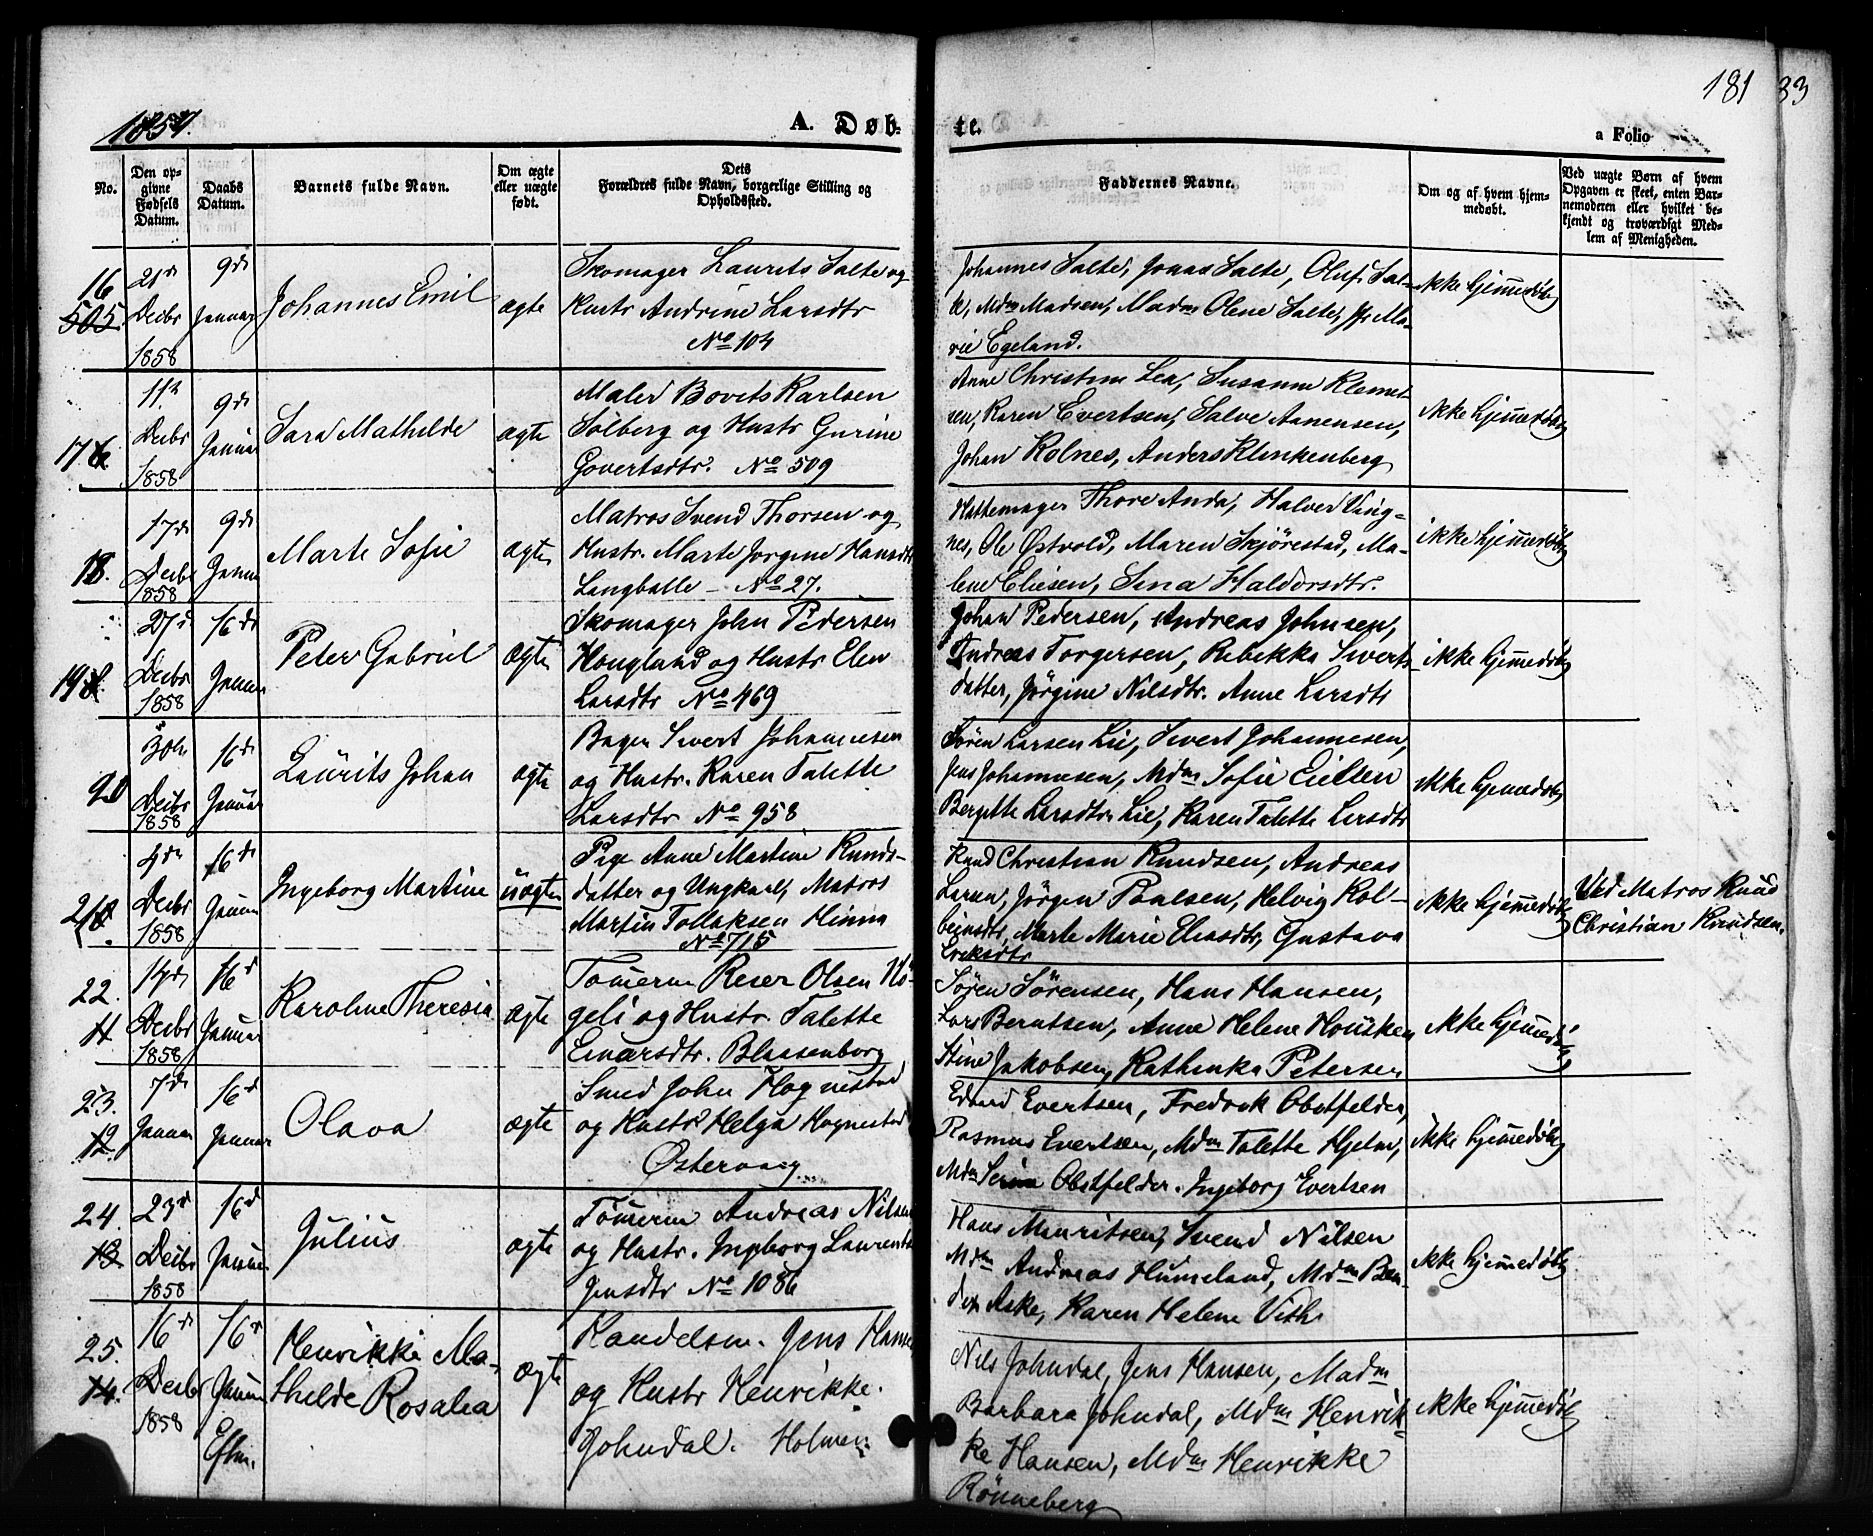 181 33
1859.
A. Døb-
te.
a Folio
No.
Den op-
givne
Fødsels
Datum.
Daabs
Datum.
Barnets fulde Navn.
Om ægte
eller uægte
født.
Dets
Forældres fulde Navn, borgerlige Stilling og
Opholdssted.
Faddernes Navne.
Om og af hvem hjem-
medøbt.
Ved uægte Børn af hvem
Opgaven er skeet, enten Bar-
nemoderen eller hvilket be-
kjendt og troværdigt Med-
lem af Menigheden.
16
505
21de
Decbr
1858
9de
Januar
Johannes Emil
ægte
Skomager Laurits Salte og
Hustr Andrine Larsdtr
No 104
Johannes Salte, Jonas Salte, Oluf Sal-
te, Mdm Madsen, Madm Olene Salte, Jfr Ma-
rie Egeland.
ikke hjemmedøbt
17
11te
Decbr
1858
9de
Januar
Sara Mathilde
ægte
Maler Bovits Karlsen
Solberg og Hustr Gurine
Govertsdtr. No 509
Anne Christine Lea, Susanne Klemet-
sen, Karen Evertsen, Salve Aanensen,
Johan Kolnes, Anders Klinkenberg
ikke hjemmedøbt
18.
17de
Decbr
1858
9de
Januar
Marte Sofie
ægte
Matros Svend Thorsen og
Hustr. Marte Jorgine Hansdtr
Langballe – No 27.
Hattemager Thore Anda, Halvor Ving-
nes, Ole Østvold, Maren Skjørestad, Ma-
lene Eliesen, Sina Haldorsdtr.
ikke hjemmedøbt
19
27de
Decbr
1858
16de
Januar
Peter Gabriel
ægte
Skomager John Pedersen
Hougland og Hustr Elen
Larsdtr No 469
Johan Pedersen, Andreas Johnsen,
Andreas Torgersen, Rebekka Sivert-
datter, Jörgine Nilsdtr. Anne Larsdtr
ikke hjemmedøbt
20
30te
Decbr
1858
16de
Januar
Laurits Johan
ægte
Bager Sivert Johannesen
og Hustr. Karen Talette
Larsdtr No 958
Sören Larsen Lie, Sivert Johannesen,
Jens Johannesen, Mdm Sofie Eielsen
Bergitte Larsdtr Lie, Karen Talette Larsdtr
ikke hjemmedøbt
21
4de
Decbr
1858
16de
Januar
Ingeborg Martine
uægte
Pige Anne Martine Knuds-
datter og Ungkarl, Matros
Martin Tollaksen Hinna
No 715
Knud Christian Knudsen, Andreas
Larsen, Jörgen Poulsen, Helvig Kol-
beinsdtr, Marte Marie Eliasdtr, Gustava
Eriksdtr
ikke hjemmedøbt
Ved Matros Knud
Christian Knudsen.
22.
11
14de
Decbr
1858
16de
Januar
Karoline Theresia
ægte
Tömerm Reier Olsen Hö-
geli og Hustr. Talette
Einarsdtr. Blaasenborg
Sören Sörensen, Hans Hansen,
Lars Berntsen, Anne Helene Houcken
Stine Jakobsen, Kathinka Petersen
ikke hjemmedøbt
23.
12
7de
Januar
16de
Januar
Olava
ægte
Smed John Hognestad
og Hustr Helga Hognestad
Østervaag
Edvard Evertsen, Fredrik Obstfelder,
Rasmus Evertsen, Mdm Talette Hjelm,
Mdm Serine Obstfelder. Ingeborg Evertsen
ikke hjemmedøbt
24.
13
23de
Decbr
1858
16de
Januar
Julius
ægte
Tömerm Andreas Nilsen
og Hustr. Ingeborg Laurentse
Jensdtr No 1086
Hans Mauritsen, Svend Nilsen
Mdm Andreas Humeland, Mdm Ben-
dix Aske, Karen Helene Vith
ikke hjemmedøbt
25.
14.
16de
Decbr
1858
16de
Januar
Eftm.
Henrikke Ma-
thilde Rosalia
ægte
Handelsm. Jens Hansen
og Hustr Henrikke
Johndal. Holmen
Nils Johndal, Jens Hansen, Madm
Barbara Johndal, Mdm Henrik-
ke Hansen, Mdm Henrikke
Rönneberg
ikke hjemmedøbt